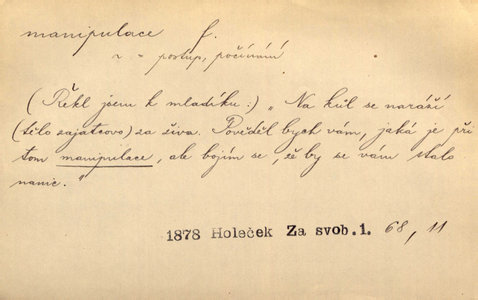 manipulace f.
~ = postup, počínání
(Řekl jsem k mladíku:) „Na kůl se naráží
(tělo zajatcovo) za živa. Pověděl bych vám, jaká je při
tom manipulace, ale bojím se, že by se vám stalo
nanic."
1878 Holeček Za svob.1. 68, 11